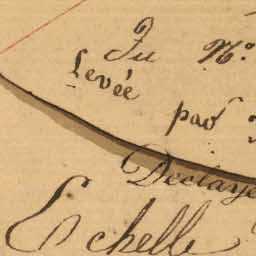 Du N.º
Levée
par
Declaye
Echelle